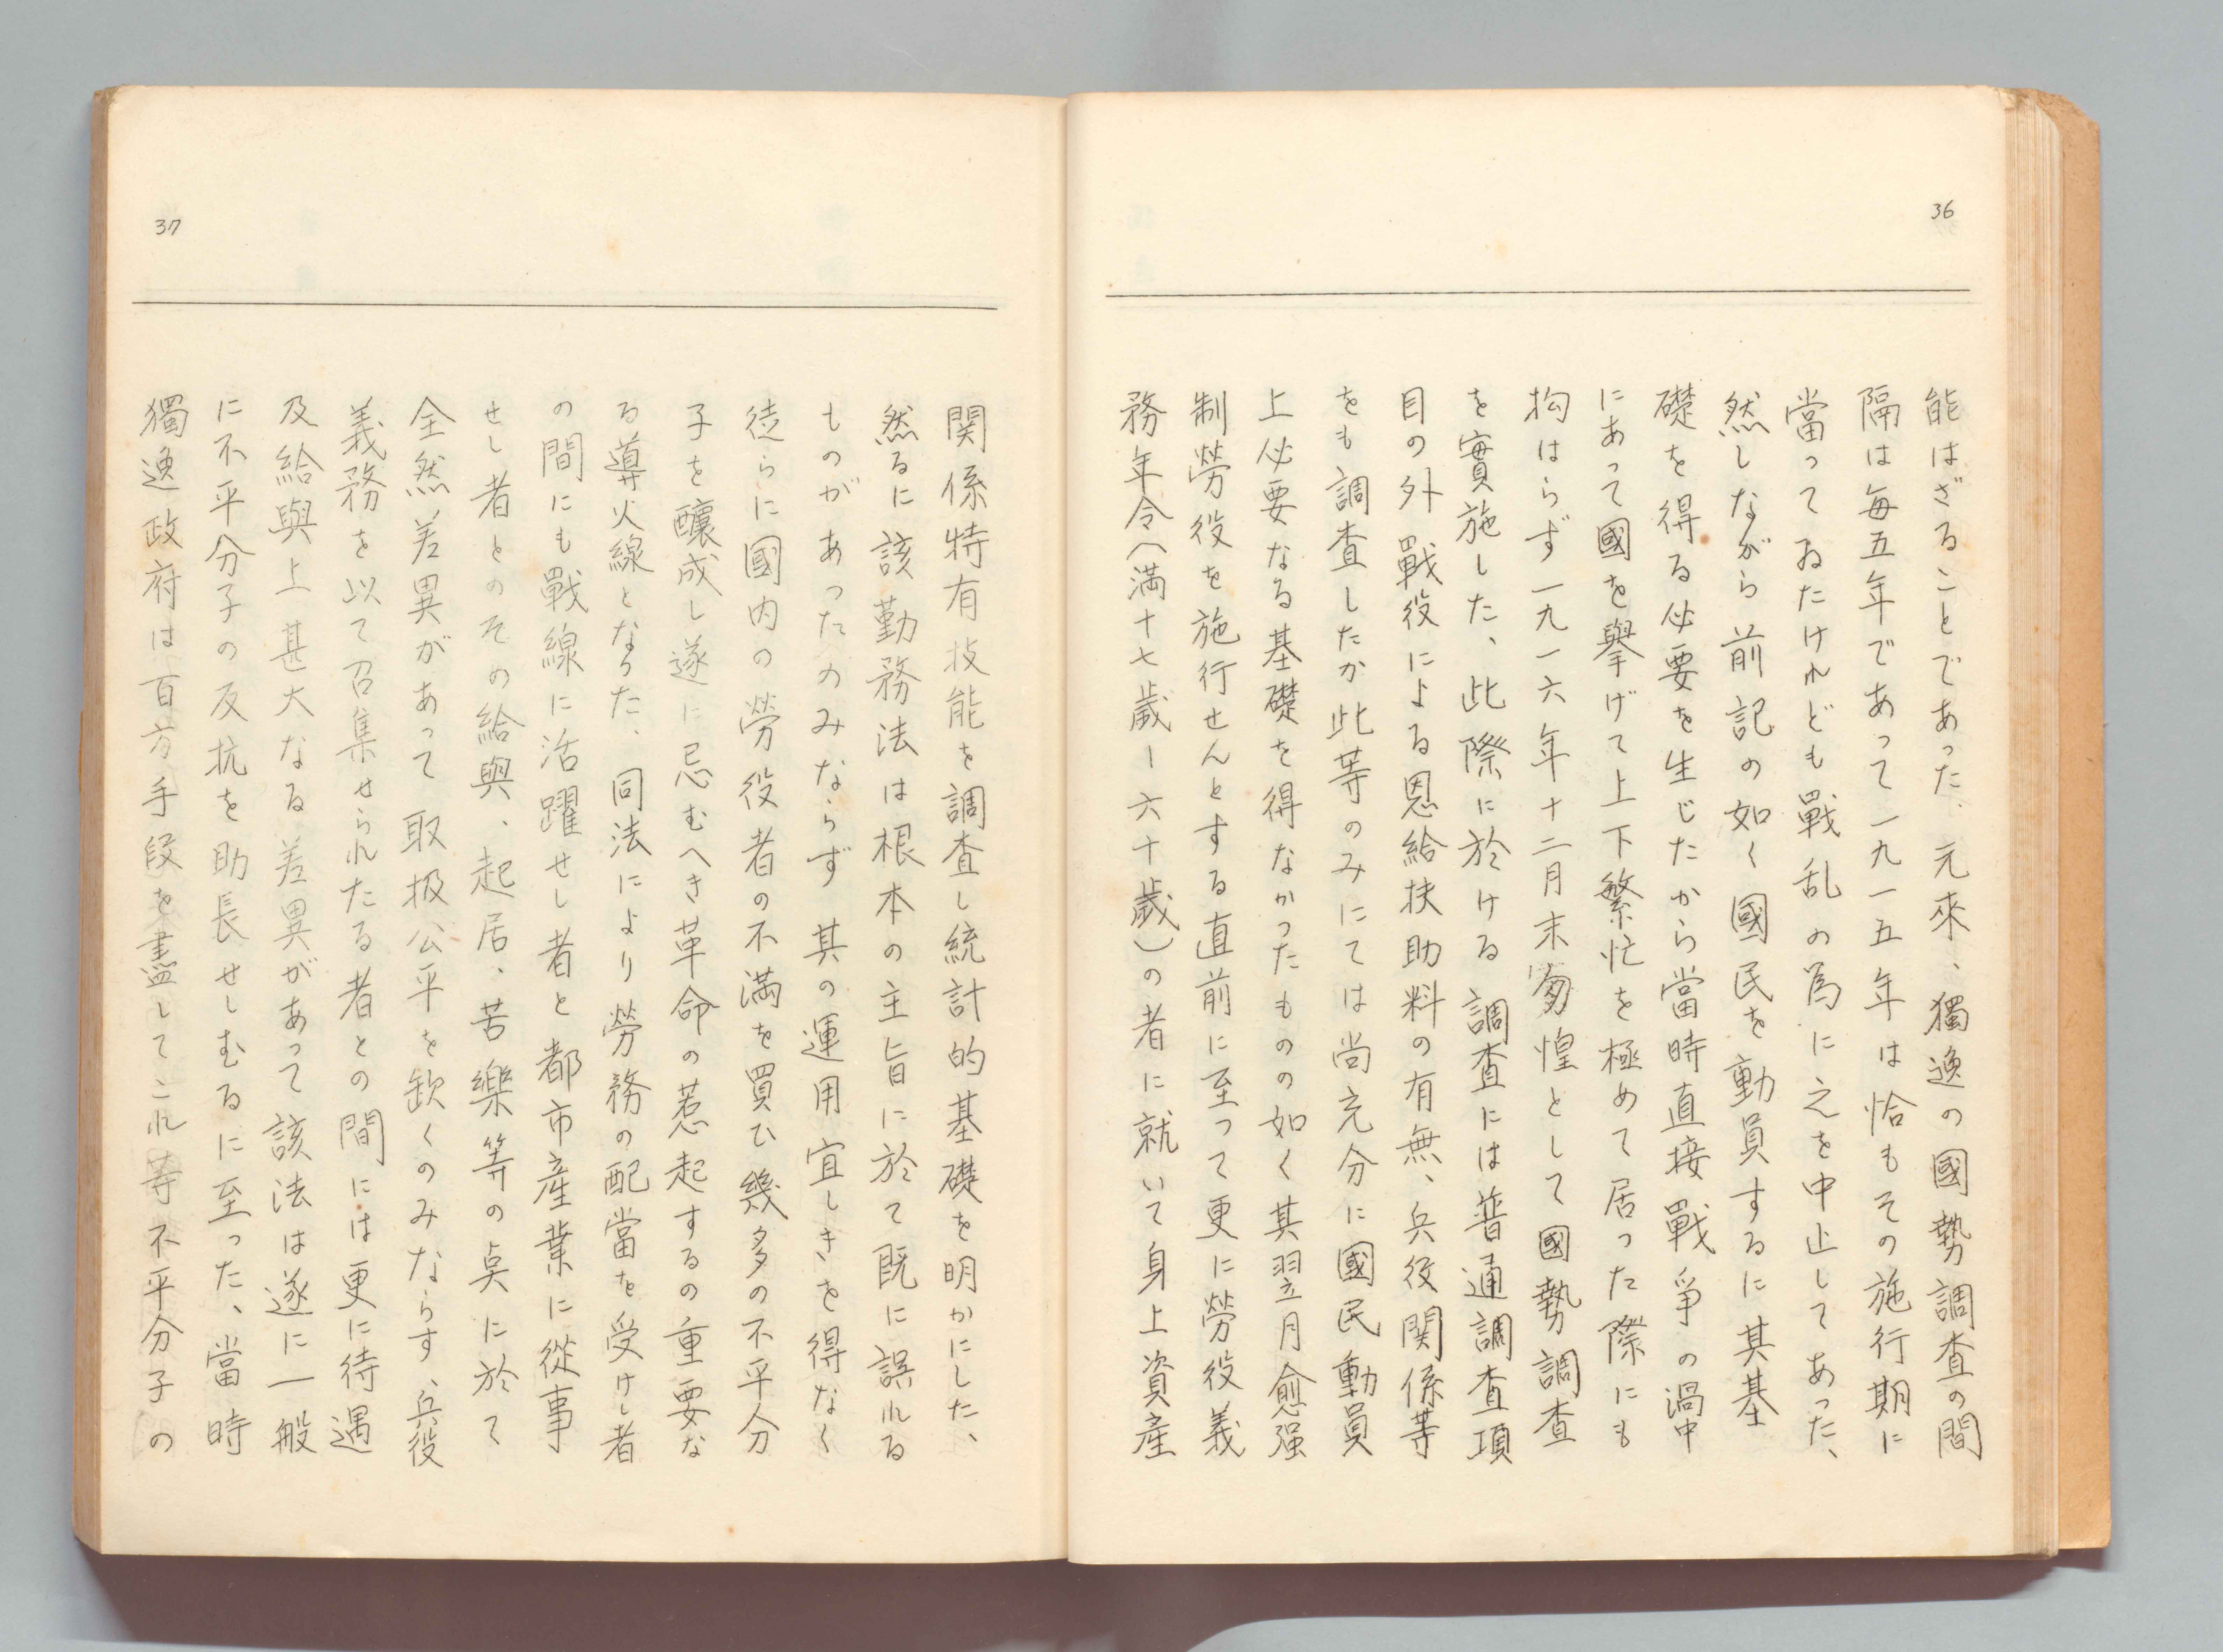 36
能はざることであった、元來、獨逸の國勢調査の間
隔は毎五年であって一九一五年は恰もその施行期に
當ってゐたけれども戰乱の為に之を中止してあった、
然しながら前記の如く國民を動員するに其基
礎を得る必要を生じたから當時直接戰爭の渦中
にあって國を擧げて上下繁忙を極めて居った際にも
拘はらず一九一六年十二月末匆惶として國勢調査
を實施した、此際に於ける調査には普通調査項
目の外戰役による恩給扶助料の有無、兵役関係等
をも調査したか此等のみにては尚充分に國民動員
上必要なる基礎を得なかったものの如く其翌月愈强
制勞役を施行せんとする直前に至って更に勞役義
務年令（満十七歳ー六十歳）の者に就いて身上資産
37
関係特有技能を調査し統計的基礎を明かにした、
然るに該勤務法は根本の主旨に於て既に誤れる
ものがあったのみならず其の運用宜しきを得なく
徒らに國内の勞役者の不満を買ひ幾多の不平分
子を醸成し遂に忌むへき革命の惹起するの重要な
る導火線となった、同法により勞務の配當を受けし者
の間にも戰線に活躍せし者と都市産業に從事
せし者とのその給與、起居、苦樂等の点に於て
全然差異があって取扱公平を欽くのみならす、兵役
義務を以て召集せられたる者との間には更に待遇
及給與上甚大なる差異があって該法は遂に一般
に不平分子の反抗を助長せしむるに至った、當時
獨逸政府は百方手段を盡してこれ等不平分子の